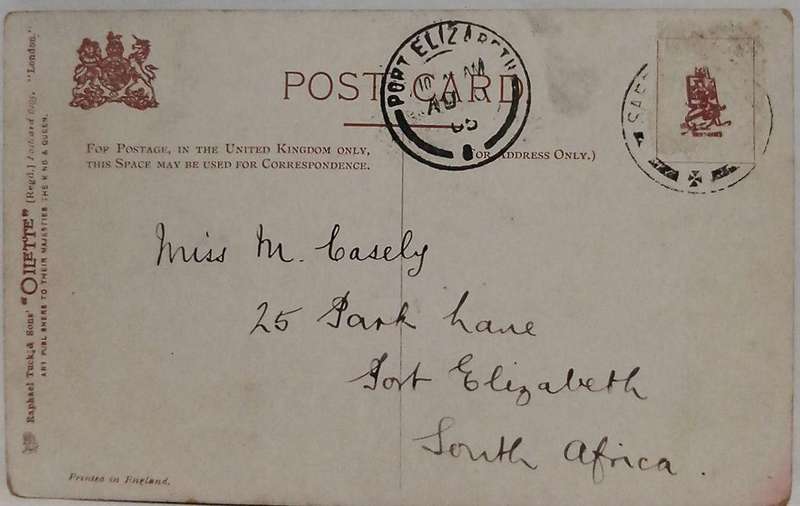 POST CARD
PORT ELIZABETH
AU
05
FOR POSTAGE, IN THE UNITED KINGDOM ONLY,
THIS SPACE MAY BE USED FOR CORRESPONDENCE.
(FOR ADDRESS ONLY.)
Miss M. Casely
25 Park Lane
Port Elizabeth
South Africa.
Raphael Tuck & Sons' "OILETTE" [Regd.] Postcard "London."
ART PUBLISHERS TO THEIR MAJESTIES THE KING & QUEEN.
Printed in England.